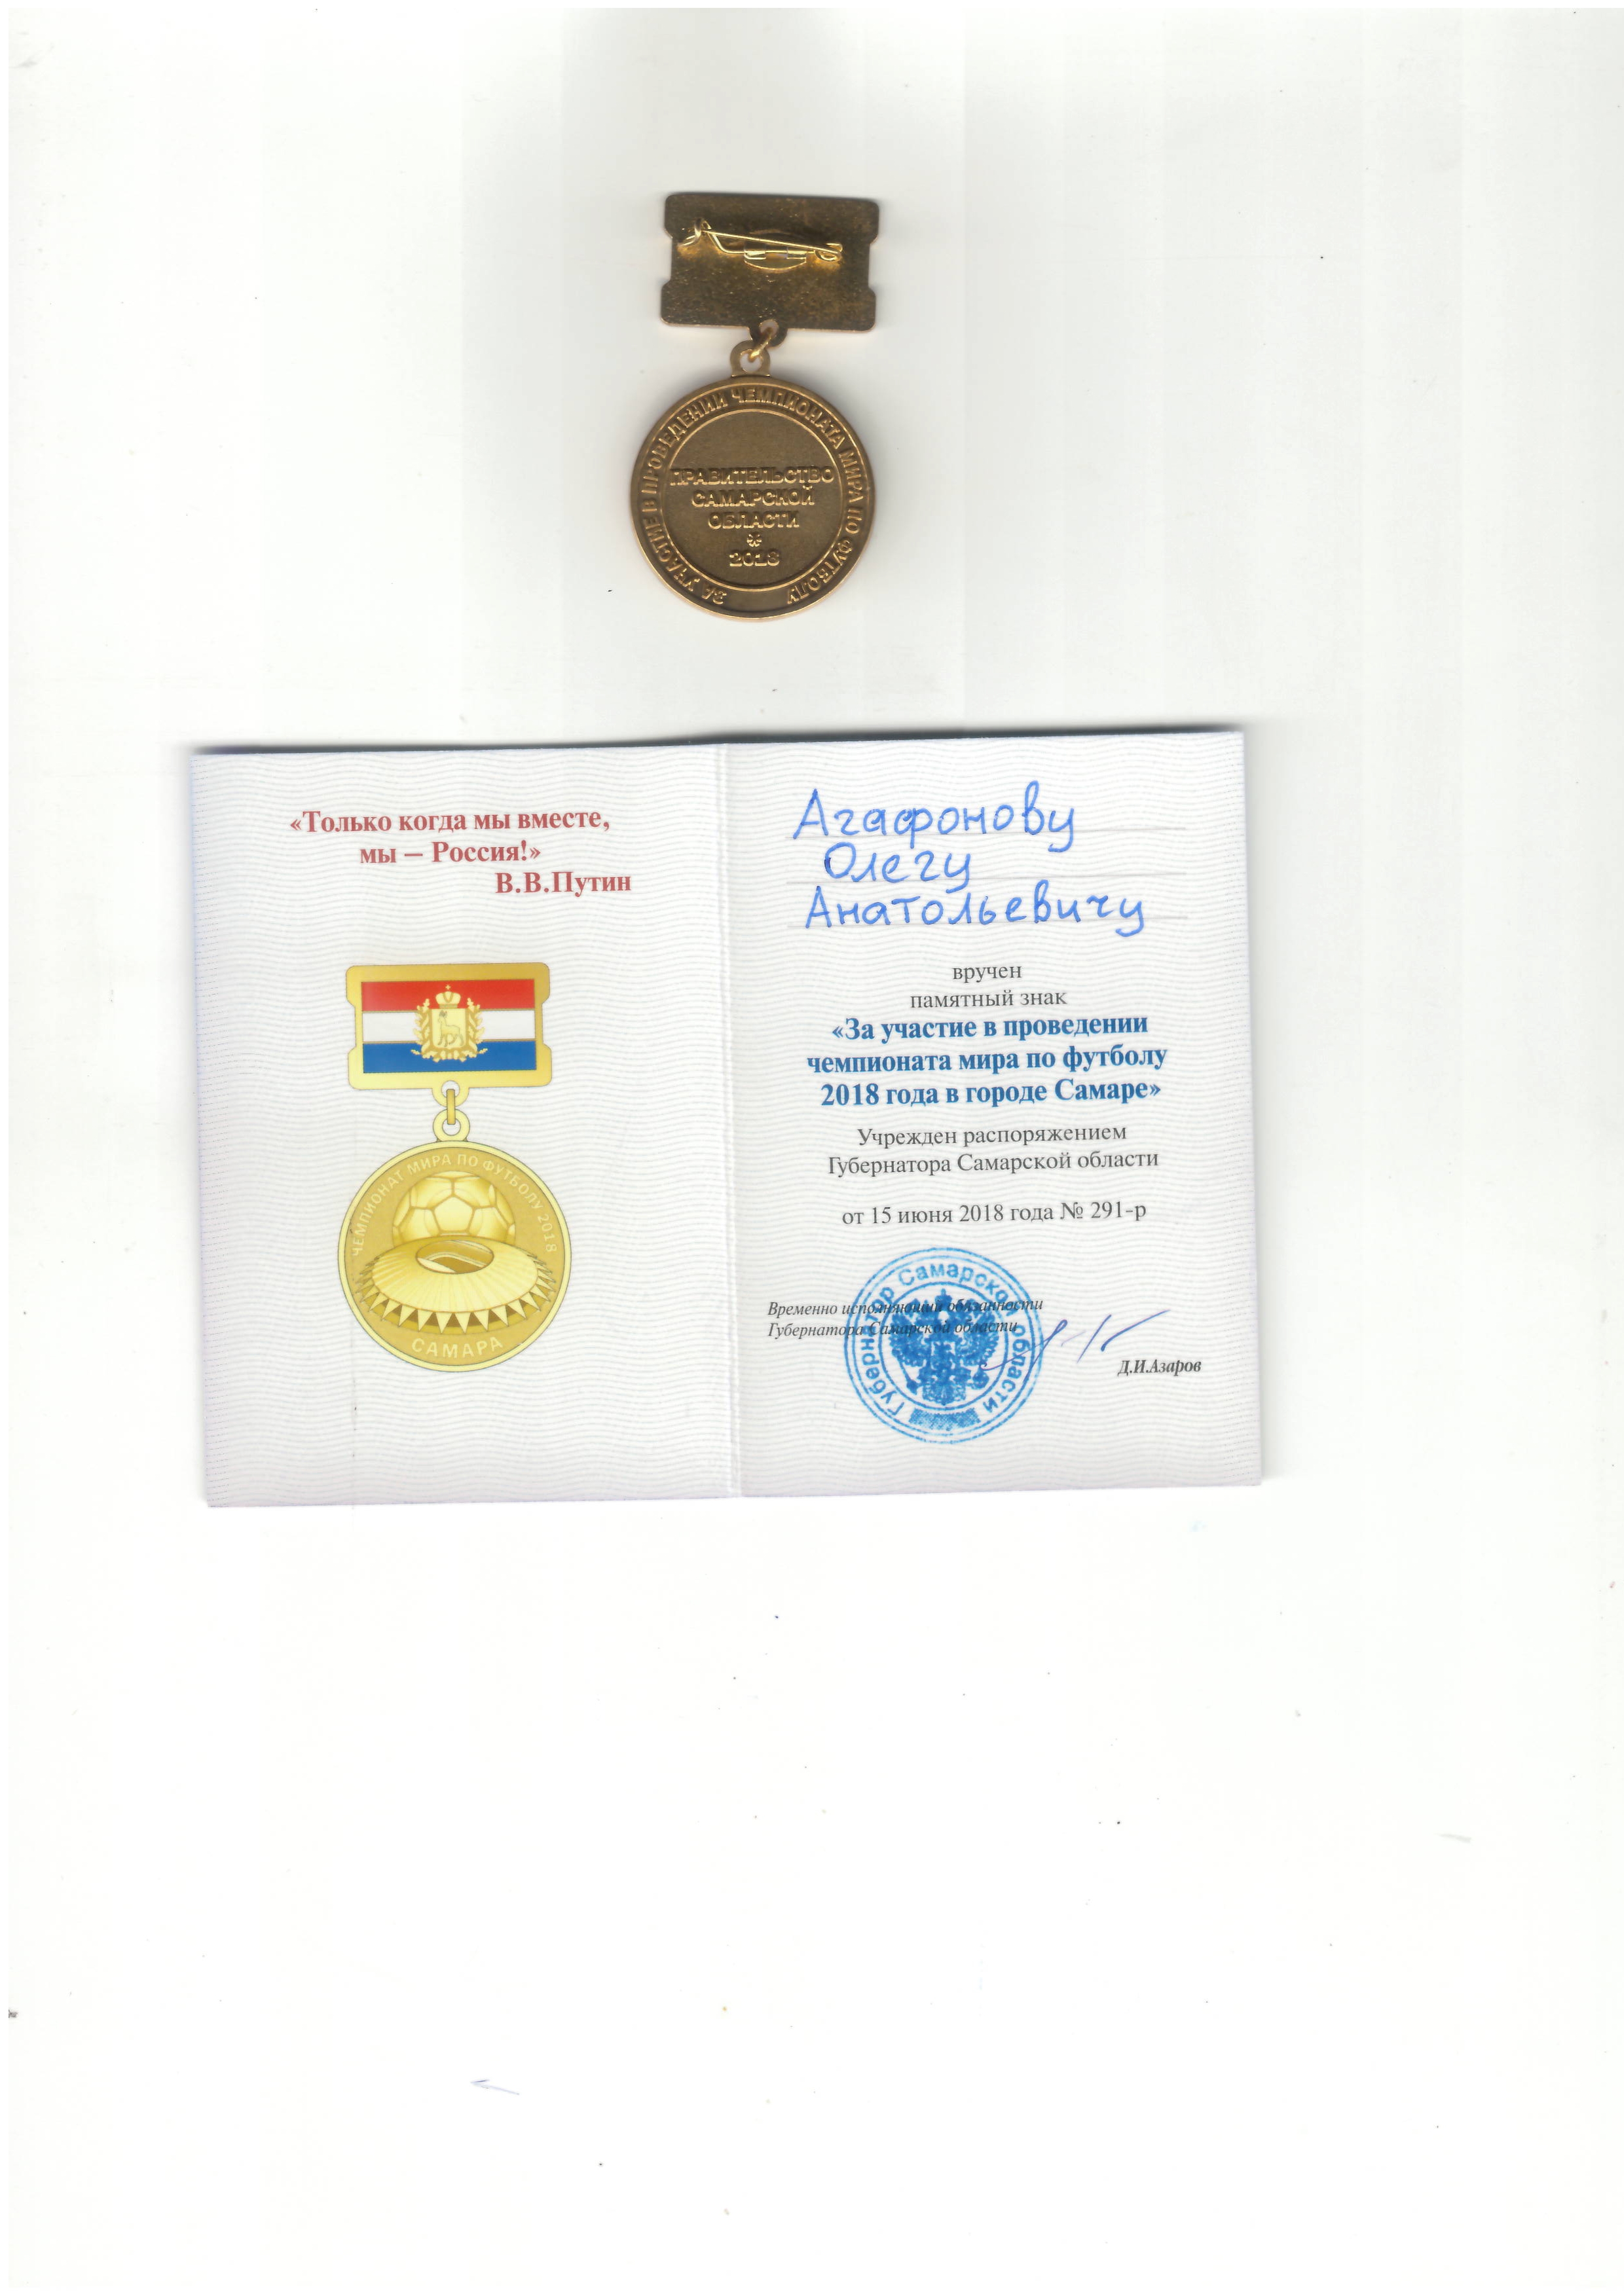 ЗА УЧАСТИЕ В ПРОВЕДЕНИИ ЧЕМПИОНАТА МИРА ПО ФУТБОЛУ
ПРАВИТЕЛЬСТВО
САМАРСКОЙ
ОБЛАСТИ
2018
«Только когда мы вместе,
мы – Россия!»
В.В.Путин
ЧЕМПИОНАТ МИРА ПО ФУТБОЛУ 2018
САМАРА
Агафонову
Олегу
Анатольевичу
вручен
памятный знак
«За участие в проведении
чемпионата мира по футболу
2018 года в городе Самаре»
Учрежден распоряжением
Губернатора Самарской области
от 15 июня 2018 года № 291-р
Временно исполняющий обязанности
Губернатора Самарской области
Д.И.Азаров
Губернатор Самарской области